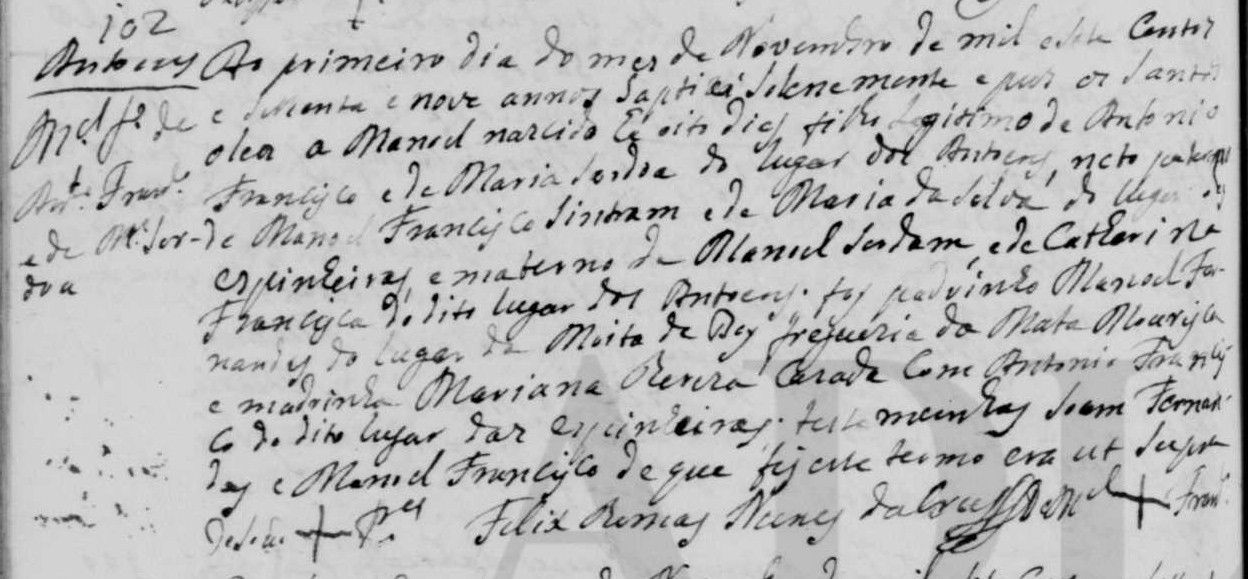 102
Antocins Ao primeiro dia do mes de Novembro de mil e sete Centos
M.el f.o de e settenta e nove annos baptizei solenemente e puz os Santos
oleos a Manoel nascido de oito dias filho legitimo de Antonio
Ant.o Fran.co Francisco e de Maria Serdoa do lugar dos Antocins, neto paterno
e de M.a Ser- de Manoel Francisco Sintram e de Maria da Selva do lugar das
doa espinheiras, e materno de Manoel Serdam, e de Catherina
Francisca do dito lugar dos Antocins. foy padrinho Manoel Fer-
nandes do lugar da Moita do Boy freguezia da Mata Mourisca
e madrinha Mariana cazada Com Antonio Francis
co do dito lugar das espinheiras. testemunhas Joam Fernan-
des e Manoel Francisco de que fiz este termo era ut supra
de Joam + Frz Felix Nunes da Cruz De M.el + Fran.co